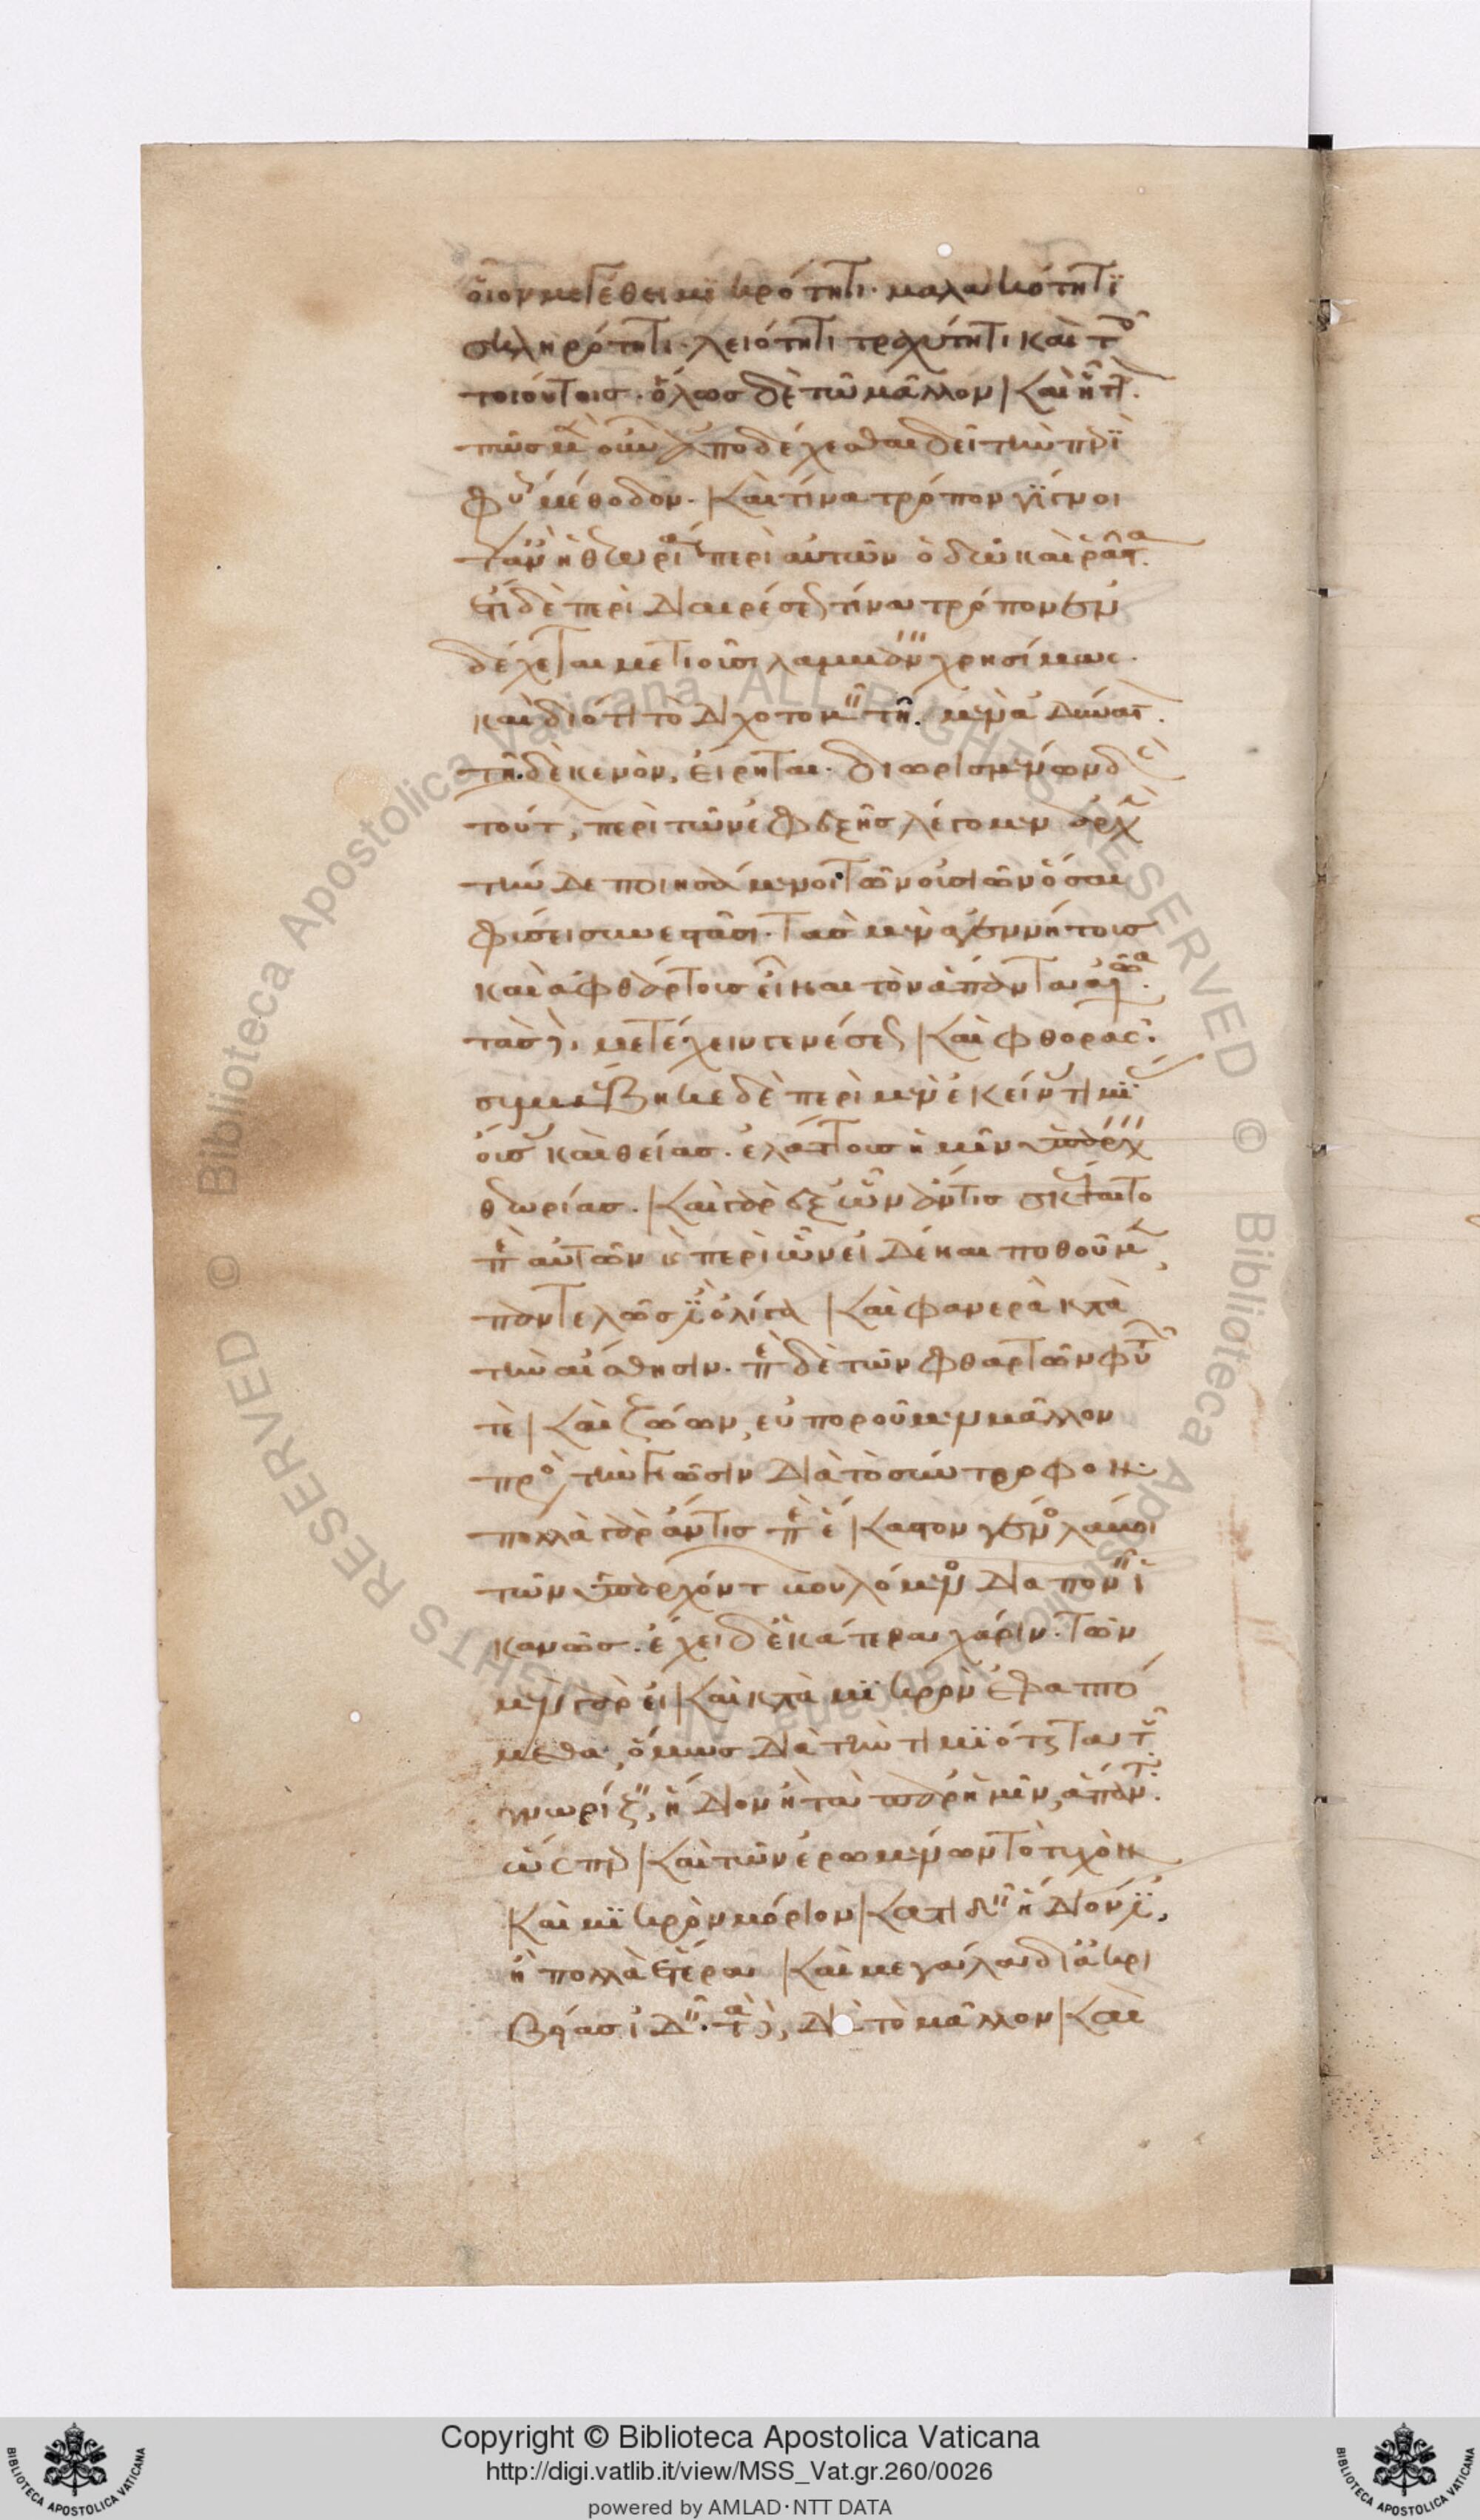 οἷον μεγέθει μικρότητι· μαλακότητι
σκληρότητι· λειότητι τραχύτητι καὶ τοῖς
τοιούτοις· ὅλως δὲ τῶ μᾶλλον καὶ ἧττ.
πῶς μὲν οὖν ἀποδέχεσθαι δεῖ τὴν περὶ
φύσεως μέθοδον· καὶ τίνα τρόπον γίγνοι
τ' ἂν ἡ θεωρία περὶ αὐτῶν ὁδῶ καὶ ῥᾷστα.
ἔτι δὲ περὶ διαιρέσεως τίνα τρόπον ἐν
δέχεται μετιοῦσι λαμβάνειν χρησίμως.
καὶ διότι τὸ διχοτομεῖν τῇ. μὲν ἀδύνατ.
τῇ. δὲ κενὸν, εἴρηται· διωρισμένων δὲ
τούτ, περὶ τῶν ἐφεξῆς λέγομεν ἀρχὴν
τήνδε ποιησάμενοι· τῶν οὐσιῶν ὅσαι
φύσει συνεστᾶσι· τὰς μὲν ἀγεννήτους
καὶ ἀφθάρτους εἶναι τὸν ἅπαντα αἰῶνα.
τὰς δὲ μετέχειν γενέσεως καὶ φθορᾶς·
συμβέβηκε δὲ περὶ μὲν ἐκείνας τιμί
ους καὶ θείας. ἐλάττους ἡμῖν ὑπάρχειν
θεωρίας. καὶ γὰρ ἐξ ὧν ἄν τις σκέψαιτο
περὶ αὐτῶν καὶ περὶ ὧν εἰδέναι ποθοῦμεν,
παντελῶς ἐστὶν ὀλίγα καὶ φανερὰ κατὰ
τὴν αἴσθησιν. περὶ δὲ τῶν φθαρτῶν φυτῶν
τὲ καὶ ζώων, εὐποροῦμεν μᾶλλον
πρὸς τὴν γνῶσιν διὰ τὸ σύντροφον·
πολλὰ γὰρ ἄν τις περὶ ἕκαστον γένος λάβοι
τῶν ὑπαρχόντ βουλόμενος διαπονεῖν ἱ
κανῶς. ἔχει δ' ἑκάτερα χάριν· τῶν
μὲν γὰρ εἰ καὶ κατὰ μικρὸν ἐφαπτό
μεθα, ὅμως διὰ τὴν τιμιότητα τοῦ
γνωρίζειν, ἥδιον ἢ τὰ παρ' ἡμῖν, ἅπαντα.
ὥσπερ καὶ τῶν ἐρωμένων τὸ τυχὸν
καὶ μικρὸν μόριον κατιδεῖν ἥδιον ἐστὶν,
ἢ πολλὰ ἕτερα καὶ μεγάλα δι' ἀκρι
βείας ἰδεῖν. τὰ δὲ, διὰ τὸ μᾶλλον καὶ
Copyright © Biblioteca Apostolica Vaticana
http://digi.vatlib.it/view/MSS_Vat.gr.260/0026
powered by AMLAD·NTT DATA